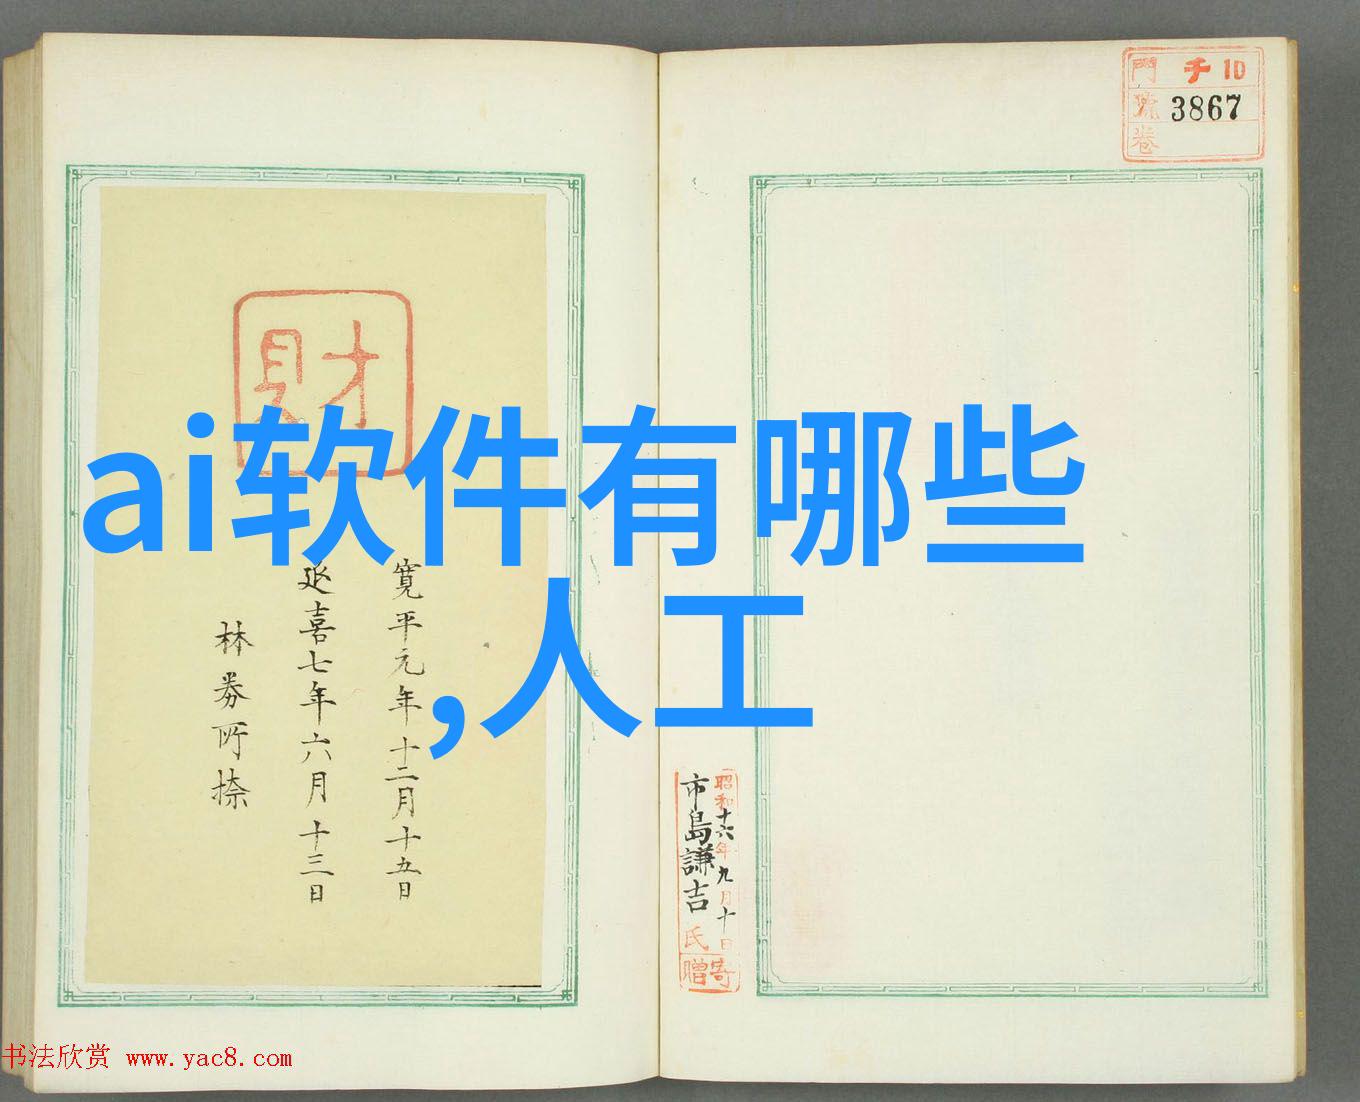 門 チ 10
號 3867
卷
財
ai软件有哪些
,人工
寛平元年十二月十五日
延喜七年六月十三日
昭和十六年九月十日
市島謙吉氏寄贈
书法欣赏 www.yac8.com